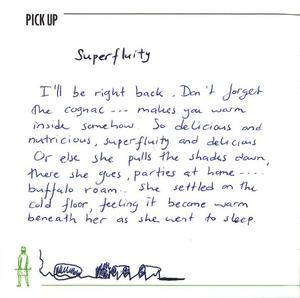 PICK UP
Superfluity
I'll be right back. Don't forget
the cognac --- makes you warm
inside somehow. So delicious and
nutricious, superfluity and delicious
Or else she pulls the shades down,
there she goes, parties at home ----
buffalo roam.. She settled on the
cold floor, feeling it become warm
beneath her as she went to sleep.